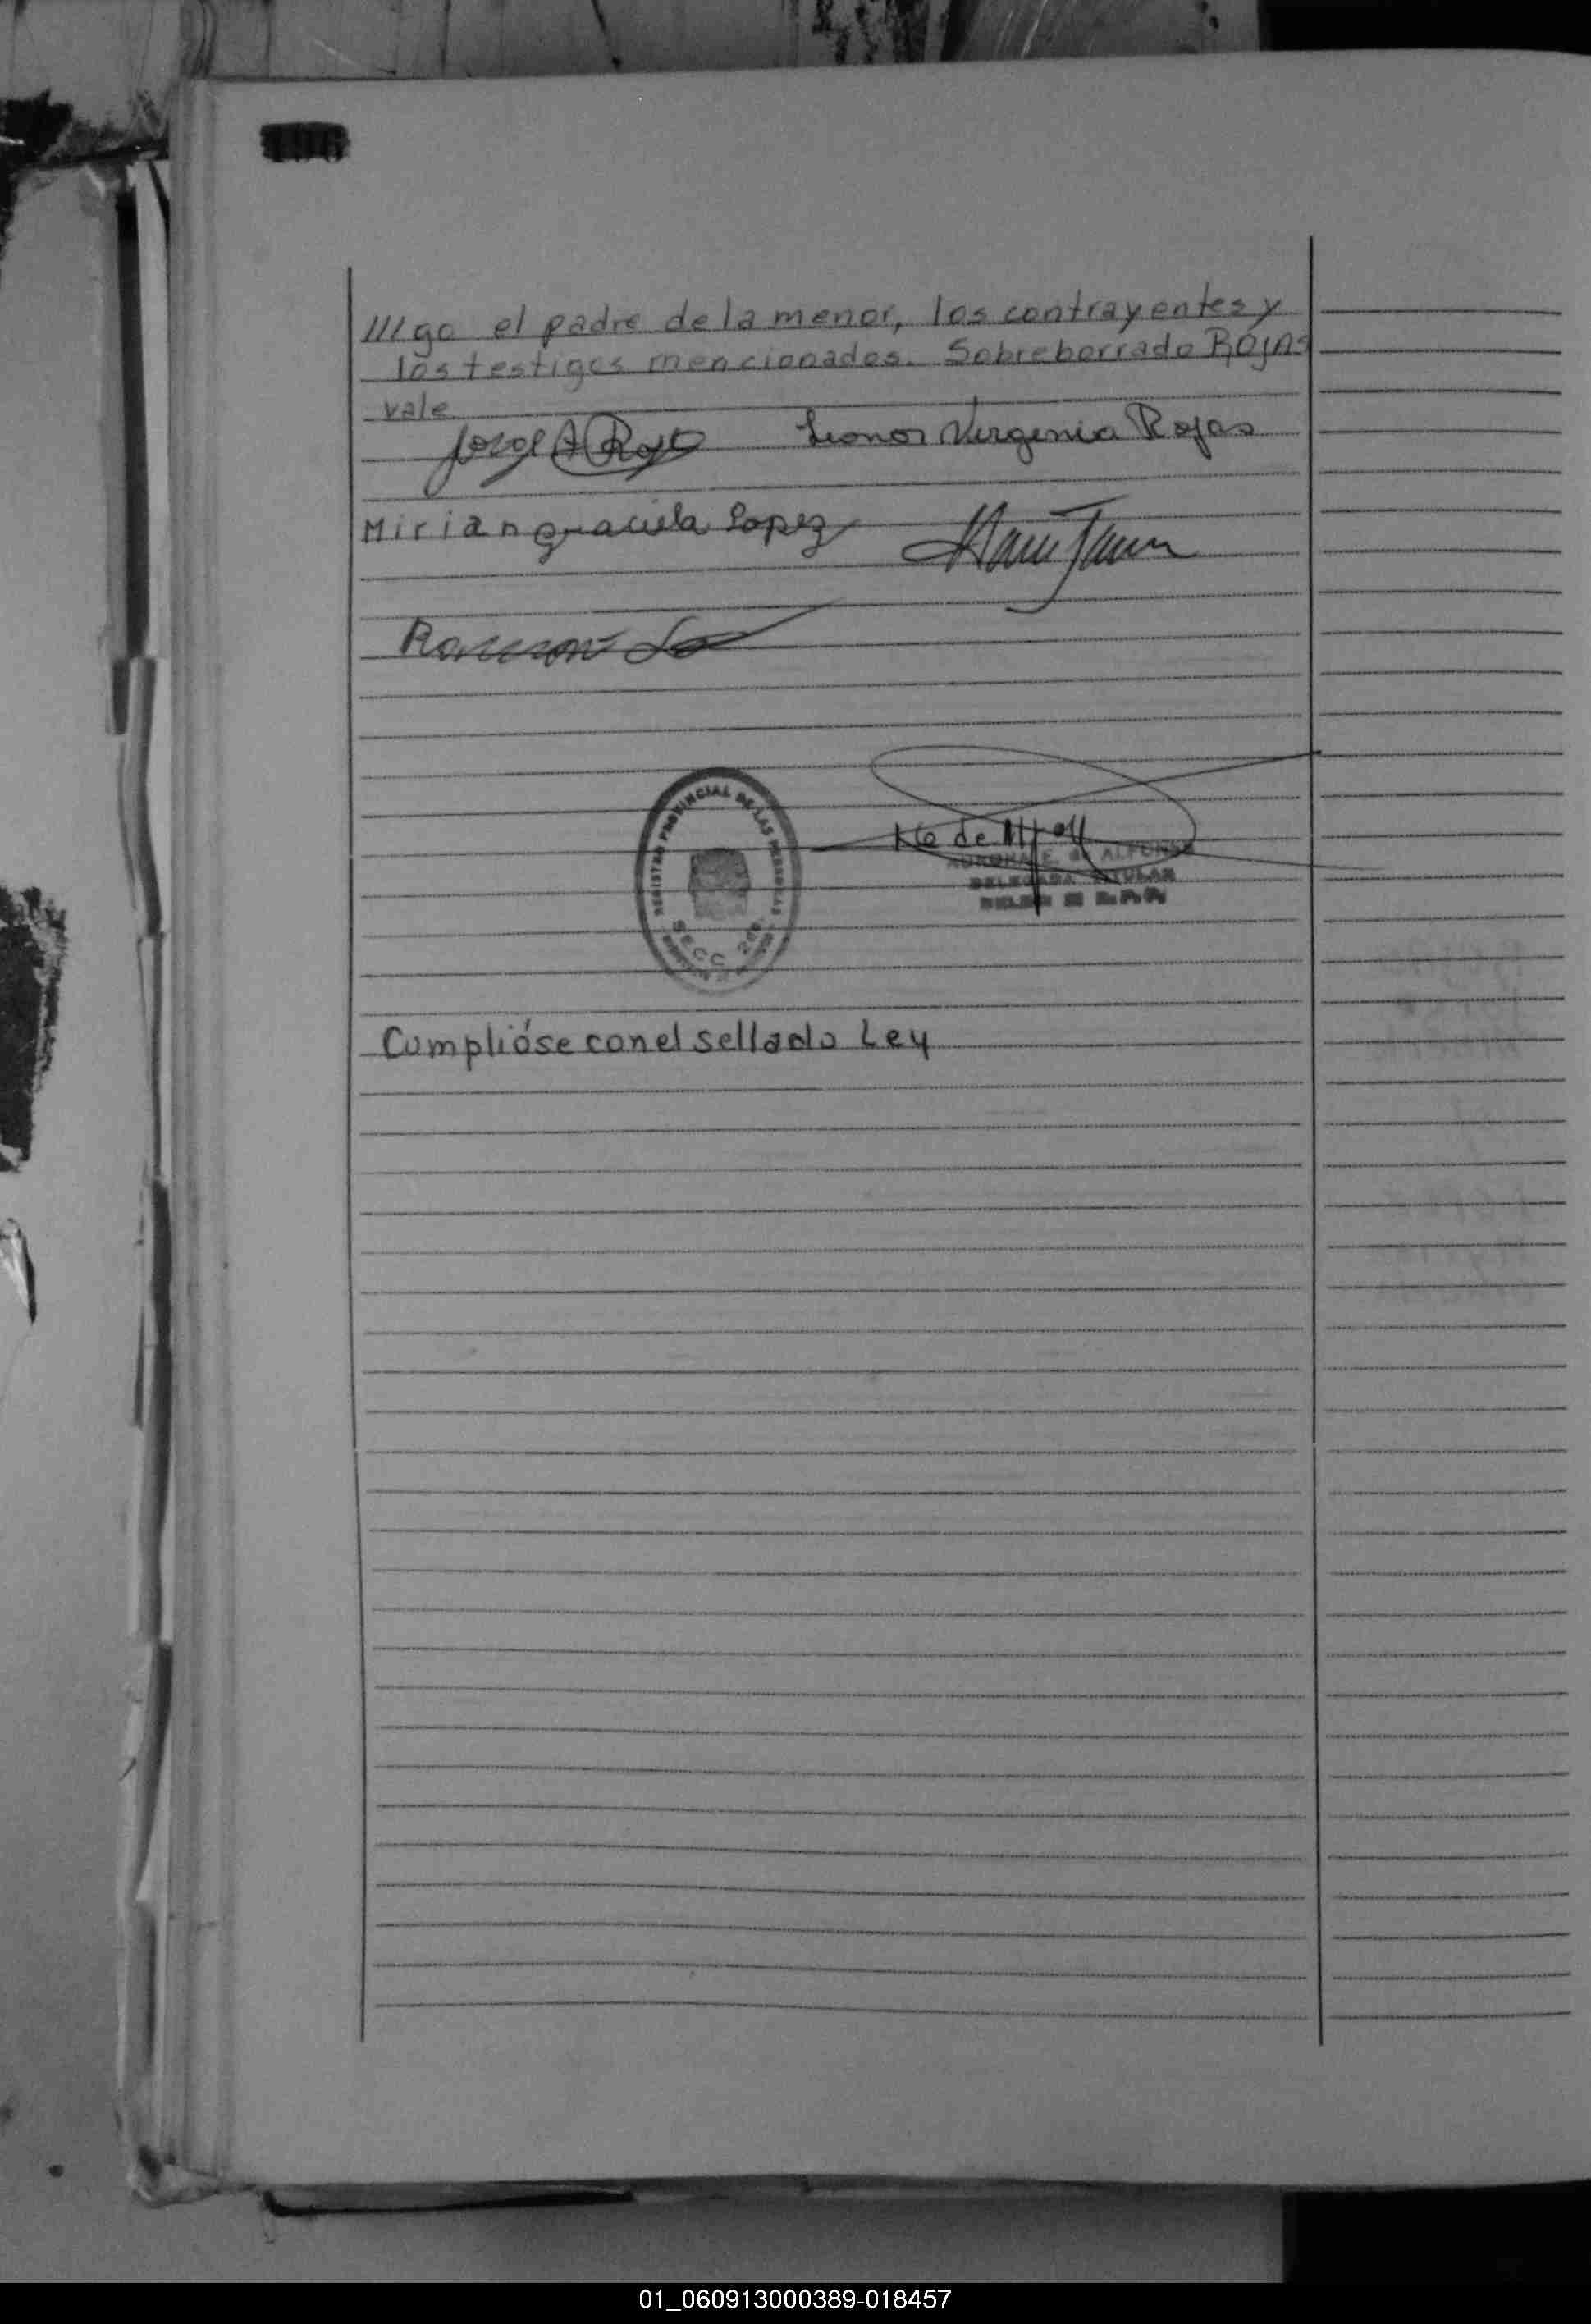 196
///go el padre de la menor, los contrayentes y
los testigos mencionados. Sobreborrado ROJAS
vale
Jorge A Rojas Leonor Virginia Rojas
Mirian graciela Lopez
Ramon
REGISTRO PROVINCIAL DE LAS PERSONAS
SECC. 2da
E. de ALFONSO
DELEGADA TITULAR
Cumplióse con el sellado Ley
01_060913000389-018457